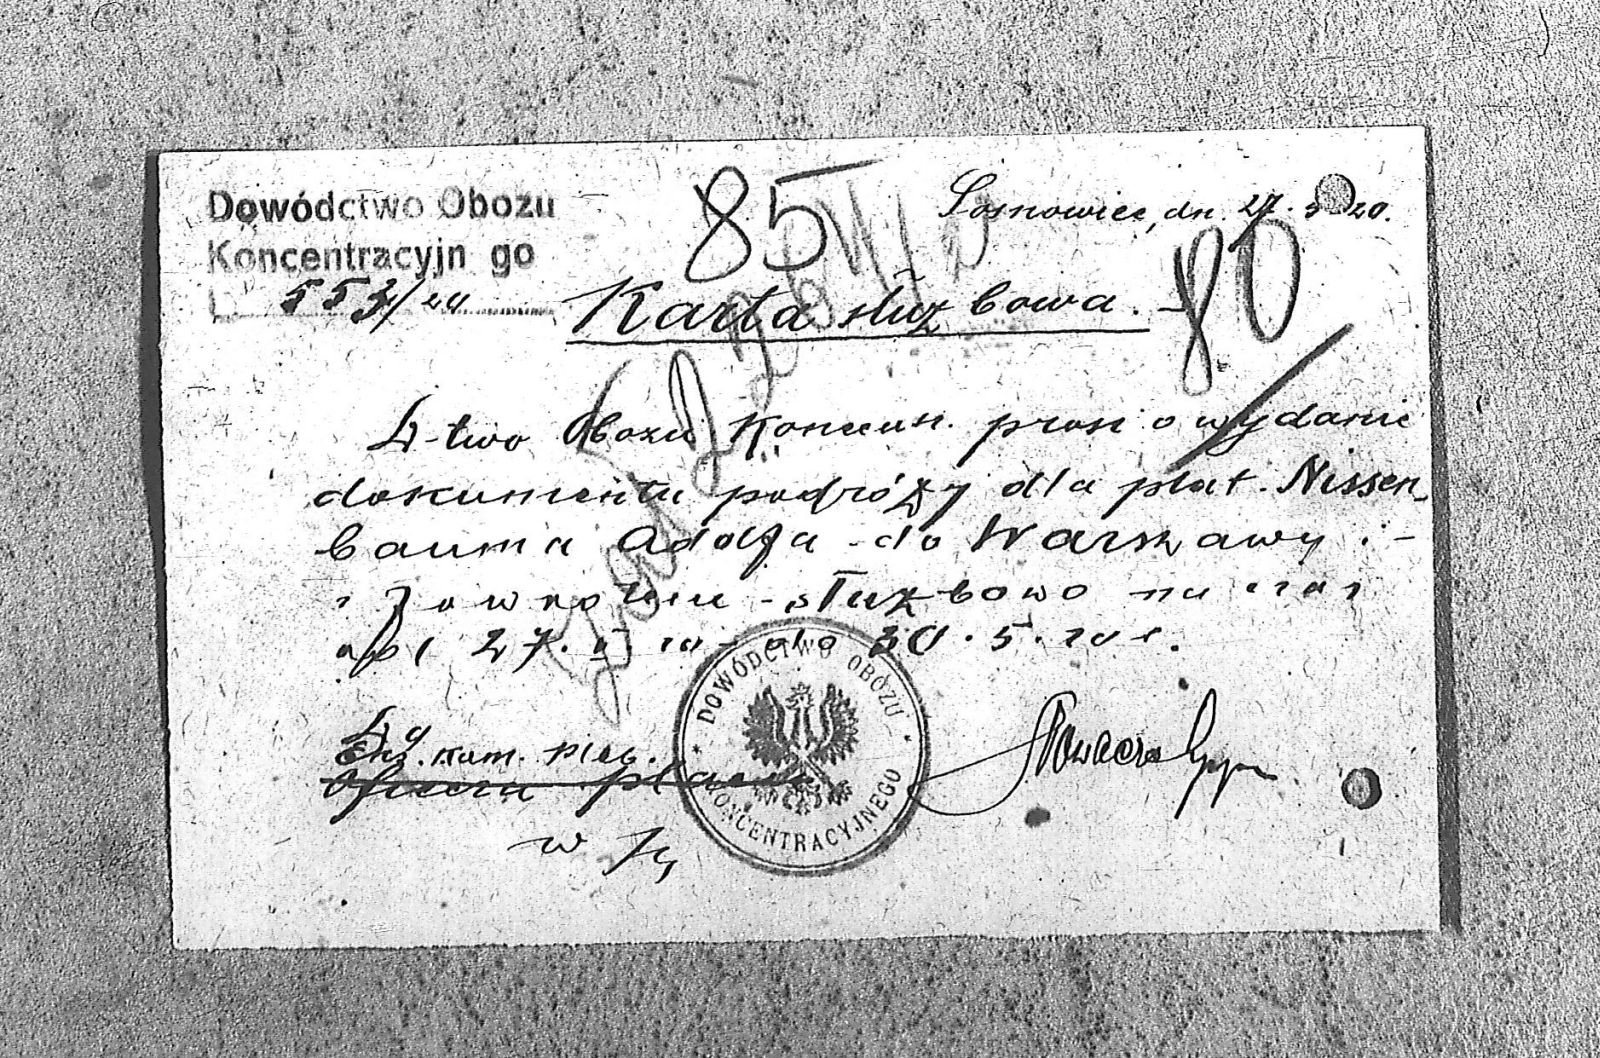 Dowództwo Obozu
Koncentracyjn go
553/20
85
Sosnowiec, dn. 27. 5 20.
80
Karta służbowa.-
D-two Obozu Koncen. prosi o wydanie
dokumentu podróży dla plut. Nissen-
bauma Adolfa do Warszawy i -
służbowo na czas
od 27. 5 20 - do 30. 5. 20 r.
D-
Eks. kom. Piec.
Oficera plac
w
DOWÓDZTWO OBOZU
KONCENTRACYJNEGO